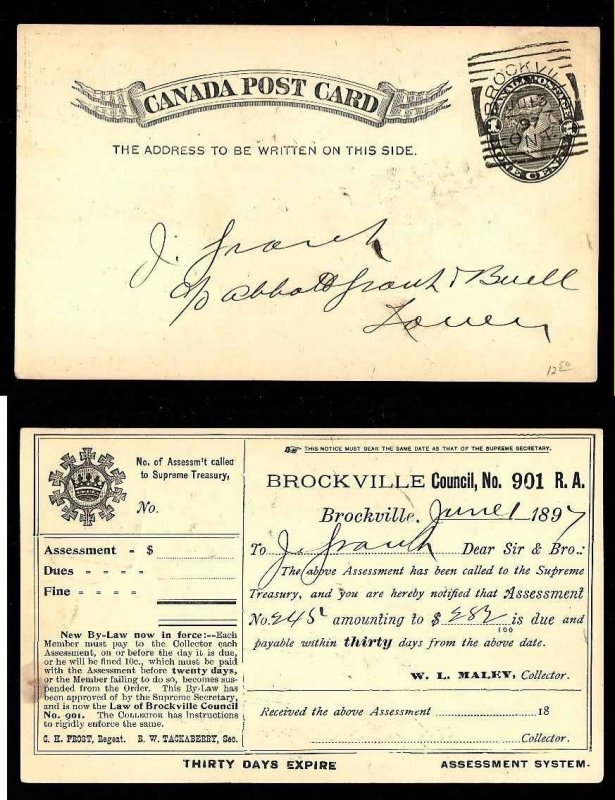 CANADA POST CARD
THE ADDRESS TO BE WRITTEN ON THIS SIDE.
BROCKVILLE
97
ONT.
CANADA POSTAGE
ONE CENT
J. Grant
c/o Abbott Grant & Buell
Town
12 50
No. of Assessm't called
to Supreme Treasury,
No.
Assessment - $
Dues - - - -
Fine - - - -
New By-Law now in force:--Each
Member must pay to the Collector each
Assessment, on or before the day it is due,
or he will be fined 10c., which must be paid
with the Assessment before twenty days,
or the Member failing to do so, becomes sus-
pended from the Order. This By-Law has
been approved by the Supreme Secretary,
and is now the Law of Brockville Council
No. 901. The COLLECTOR has instructions
to rigidly enforce the same.
C. H. FROST, Regent. B. W. TACKABERRY, Sec.
THIS NOTICE MUST BEAR THE SAME DATE AS THAT OF THE SUPREME SECRETARY.
BROCKVILLE Council, No. 901 R. A.
Brockville, June 1 1897
To J. Grant Dear Sir & Bro.:
The above Assessment has been called to the Supreme
Treasury, and you are hereby notified that Assessment
No. 245 amounting to $ 282/100 is due and
payable within thirty days from the above date.
W. L. MALEY, Collector.
Received the above Assessment 18
Collector.
THIRTY DAYS EXPIRE ASSESSMENT SYSTEM.